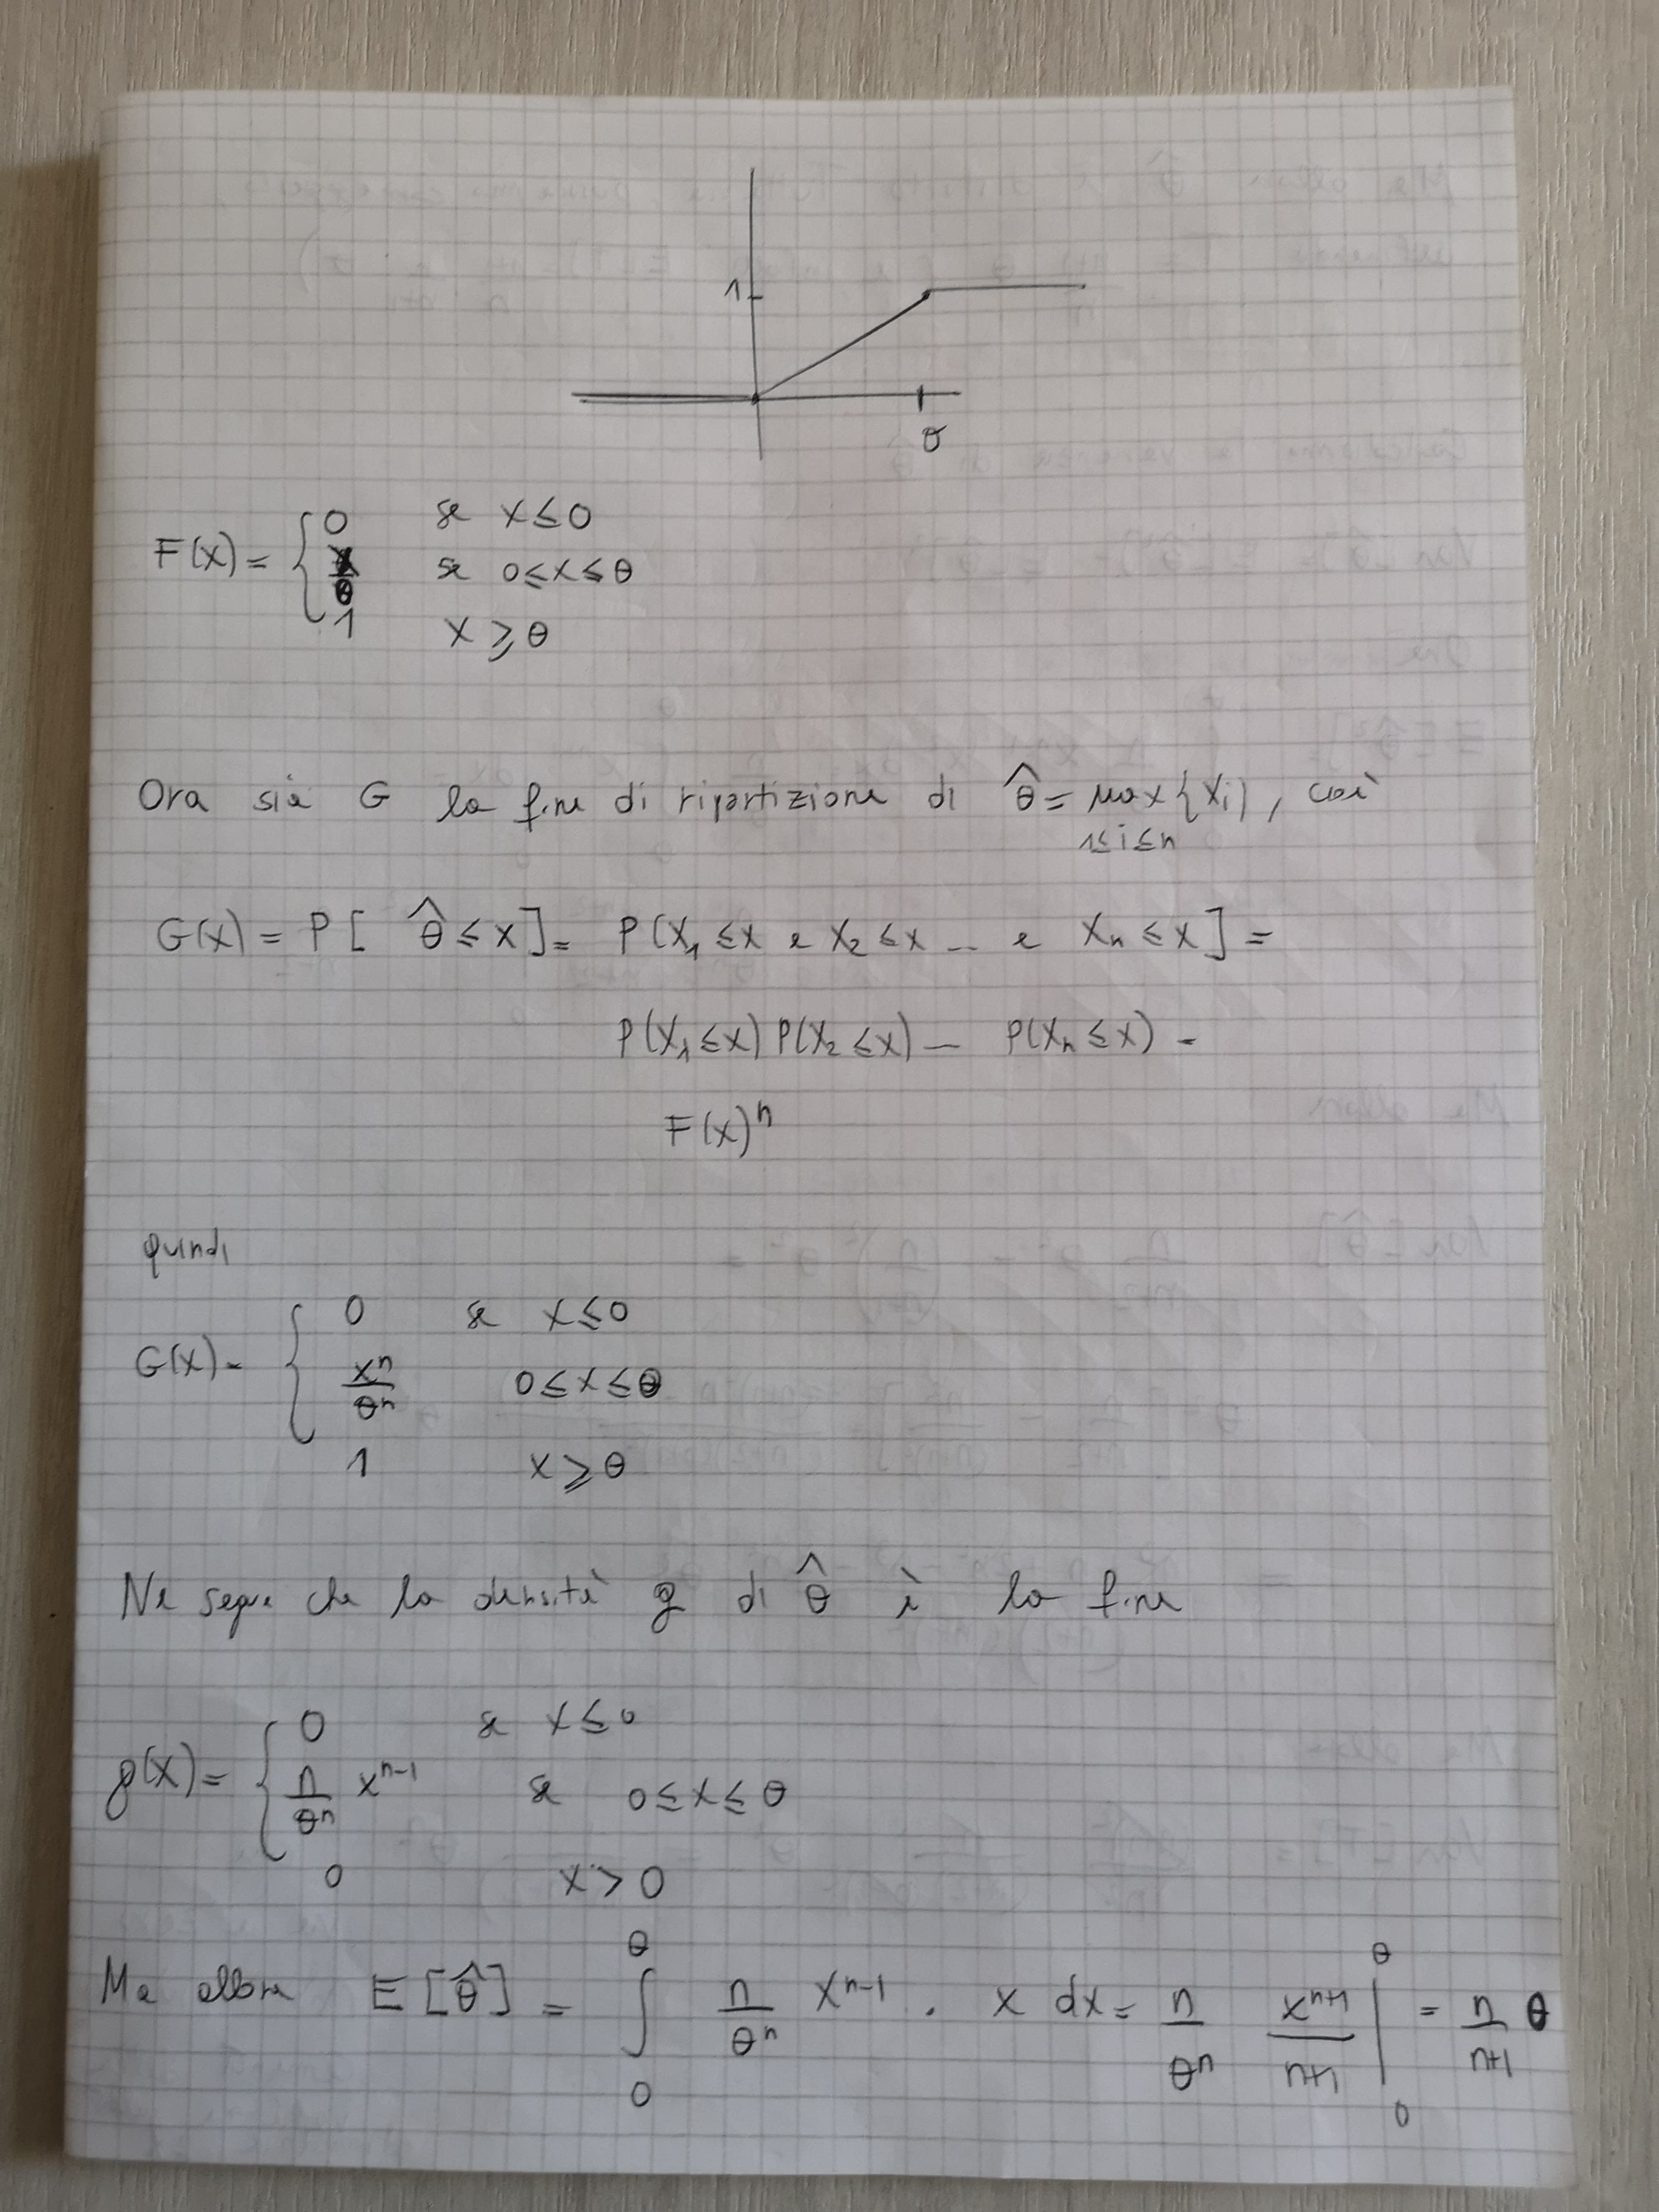 1
θ
F(x) = { 0 se x ≤ 0
x/θ se 0 ≤ x ≤ θ
1 x ⩾ θ
Ora sia G la f.ne di ripartizione di θ̂ = max{Xi}, cioè
1≤i≤n
G(x) = P[ θ̂ ≤ x] = P[X₁ ≤ x e X₂ ≤ x ... e Xn ≤ x] =
P(X₁ ≤ x) P(X₂ ≤ x) — P(Xn ≤ x) =
F(x)ⁿ
quindi
G(x) = { 0 se x ≤ 0
xⁿ/θⁿ 0 ≤ x ≤ θ
1 x ⩾ θ
Ne segue che la densità g di θ̂ è la f.ne
g(x) = { 0 se x ≤ 0
n/θⁿ xⁿ⁻¹ se 0 ≤ x ≤ θ
0 x > 0
Ma allora E[θ̂] = ∫₀^θ n/θⁿ xⁿ⁻¹ · x dx = n/θⁿ xⁿ⁺¹/n+1 |₀^θ = n/n+1 θ